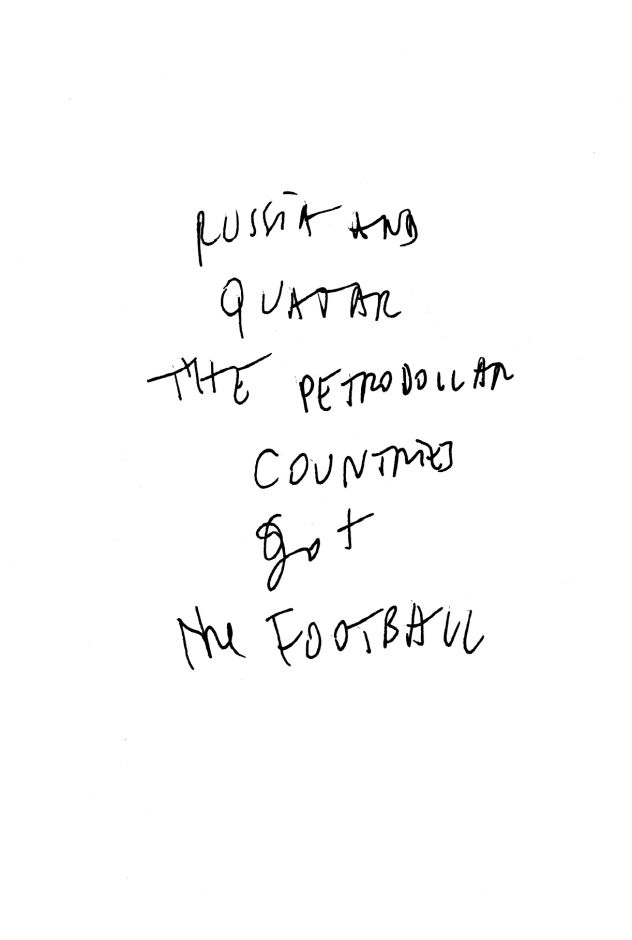 RUSSIA AND
QUATAR
THE PETRODOLLAR
COUNTRIES
got
the FOOTBALL